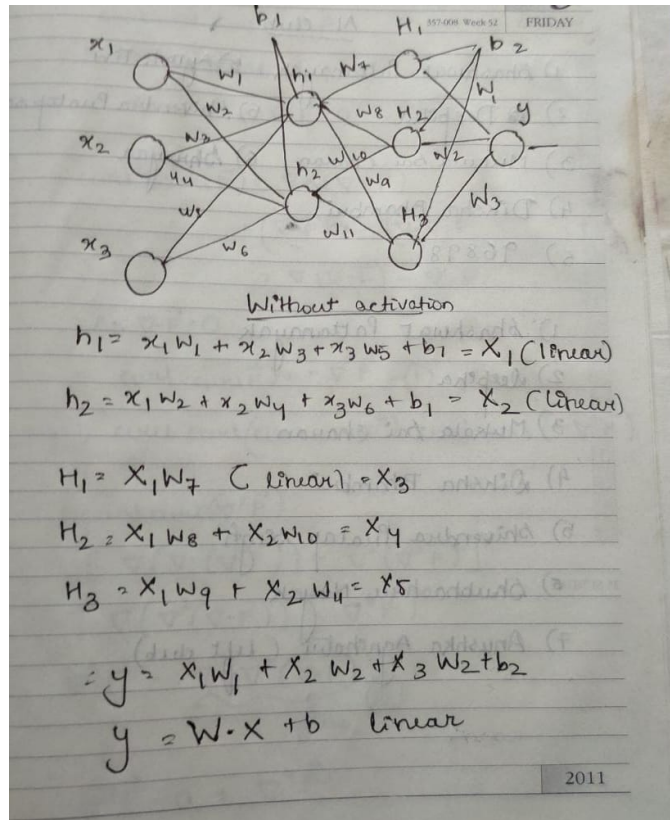 357-008 Week 52 FRIDAY
b1 H1 b2
x1 w1 h1 W7 W1 y
w2 w8 H2
x2 w3 W2
w4 h2 w10 w9
w5 H3 W3
x3 w6 w11
Without activation
h1 = x1 w1 + x2 w3 + x3 w5 + b1 = X1 (linear)
h2 = x1 w2 + x2 w4 + x3 w6 + b1 = X2 (linear)
H1 = X1 W7 (linear) = X3
H2 = X1 W8 + X2 W10 = X4
H3 = X1 W9 + X2 W4 = X5
∴ y = X1 W1 + X2 W2 + X3 W2 + b2
y = W·X + b linear
2011